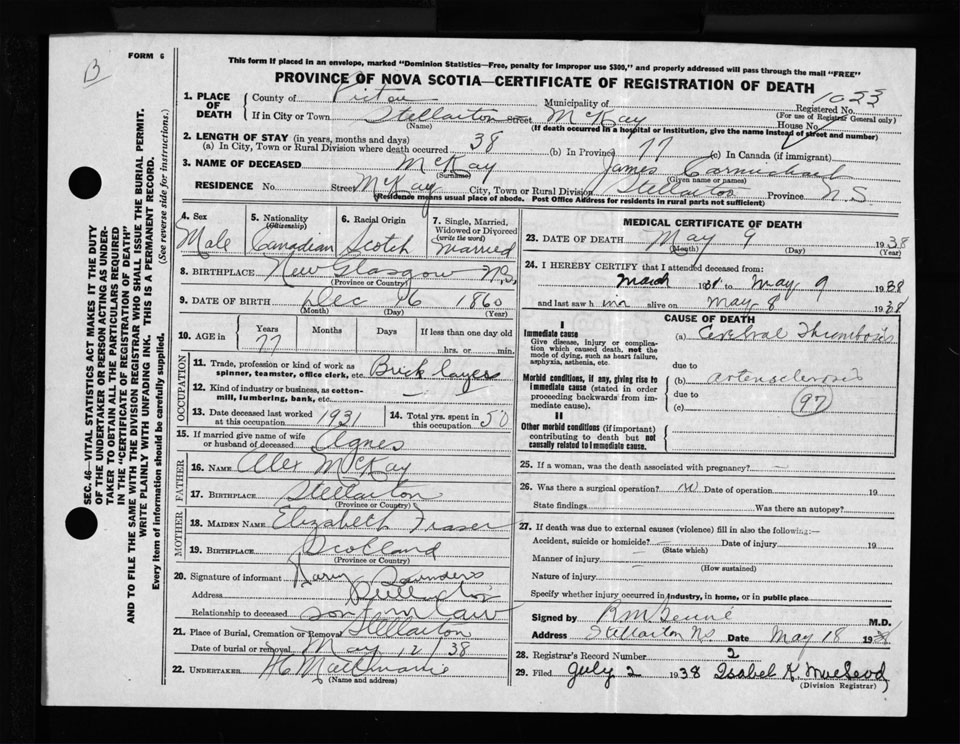 B
FORM 6
This form if placed in an envelope, marked "Dominion Statistics—Free, penalty for improper use $300," and properly addressed will pass through the mail "FREE"
PROVINCE OF NOVA SCOTIA—CERTIFICATE OF REGISTRATION OF DEATH
SEC. 46—VITAL STATISTICS ACT MAKES IT THE DUTY
OF THE UNDERTAKER OR PERSON ACTING AS UNDER-
TAKER TO OBTAIN ALL THE PARTICULARS REQUIRED
IN THE "CERTIFICATE OF REGISTRATION OF DEATH"
AND TO FILE THE SAME WITH THE DIVISION REGISTRAR WHO SHALL ISSUE THE BURIAL PERMIT.
WRITE PLAINLY WITH UNFADING INK. THIS IS A PERMANENT RECORD.
Every item of information should be carefully supplied.
(See reverse side for instructions.)
1. PLACE OF DEATH
County of Pictou Municipality of Registered No. 1053
(For use of Registrar General only)
If in City or Town Stellarton Street McKay House No.
(Name) (If death occurred in a hospital or institution, give the name instead of street and number)
2. LENGTH OF STAY (in years, months and days)
(a) In City, Town or Rural Division where death occurred 38 (b) In Province 77 (c) In Canada (if immigrant)
3. NAME OF DECEASED McKay James Carmichael
(Surname) (Given name or names)
RESIDENCE No. Street McKay City, Town or Rural Division Stellarton Province N.S.
(Residence means usual place of abode. Post Office Address for residents in rural parts not sufficient)
4. Sex
Male
5. Nationality
(Citizenship)
Canadian
6. Racial Origin
Scotch
7. Single, Married,
Widowed or Divorced
(write the word)
Married
8. BIRTHPLACE New Glasgow N.S.
(Province or Country)
9. DATE OF BIRTH Dec 16 1860
(Month) (Day) (Year)
10. AGE in Years Months Days If less than one day old
77 hrs. or min.
OCCUPATION
11. Trade, profession or kind of work as
spinner, teamster, office clerk, etc. Brick layer
12. Kind of industry or business, as cotton-
mill, lumbering, bank, etc.
13. Date deceased last worked
at this occupation 1931
14. Total yrs. spent in
this occupation 50
15. If married give name of wife
or husband of deceased Agnes
FATHER
16. NAME Alex McKay
17. BIRTHPLACE Stellarton
(Province or Country)
MOTHER
18. MAIDEN NAME Elizabeth Fraser
19. BIRTHPLACE Scotland
(Province or Country)
20. Signature of informant Saunders
Address
Relationship to deceased son in law
21. Place of Burial, Cremation or Removal Stellarton
Date of burial or removal May 12/38
22. UNDERTAKER
(Name and address)
MEDICAL CERTIFICATE OF DEATH
23. DATE OF DEATH May 9 1938
(Month) (Day) (Year)
24. I HEREBY CERTIFY that I attended deceased from:
March 1938 to May 9 1938
and last saw him alive on May 8 1938
CAUSE OF DEATH
I
Immediate cause
Give disease, injury or complica-
tion which caused death, not the
mode of dying, such as heart failure,
asphyxia, asthenia, etc.
(a) Cerebral Thrombosis
due to
Morbid conditions, if any, giving rise to
immediate cause (stated in order
proceeding backwards from im-
mediate cause).
(b) arteriosclerosis
due to
(c) 97
II
Other morbid conditions (if important)
contributing to death but not
causally related to immediate cause.
25. If a woman, was the death associated with pregnancy?
26. Was there a surgical operation? no Date of operation 19
State findings Was there an autopsy?
27. If death was due to external causes (violence) fill in also the following:-
Accident, suicide or homicide? Date of injury 19
(State which)
Manner of injury
(How sustained)
Nature of injury
Specify whether injury occurred in industry, in home, or in public place
Signed by M.D.
Address Stellarton NS Date May 18 1938
28. Registrar's Record Number 2
29. Filed July 2 1938 Isabel K. MacLeod
(Division Registrar)